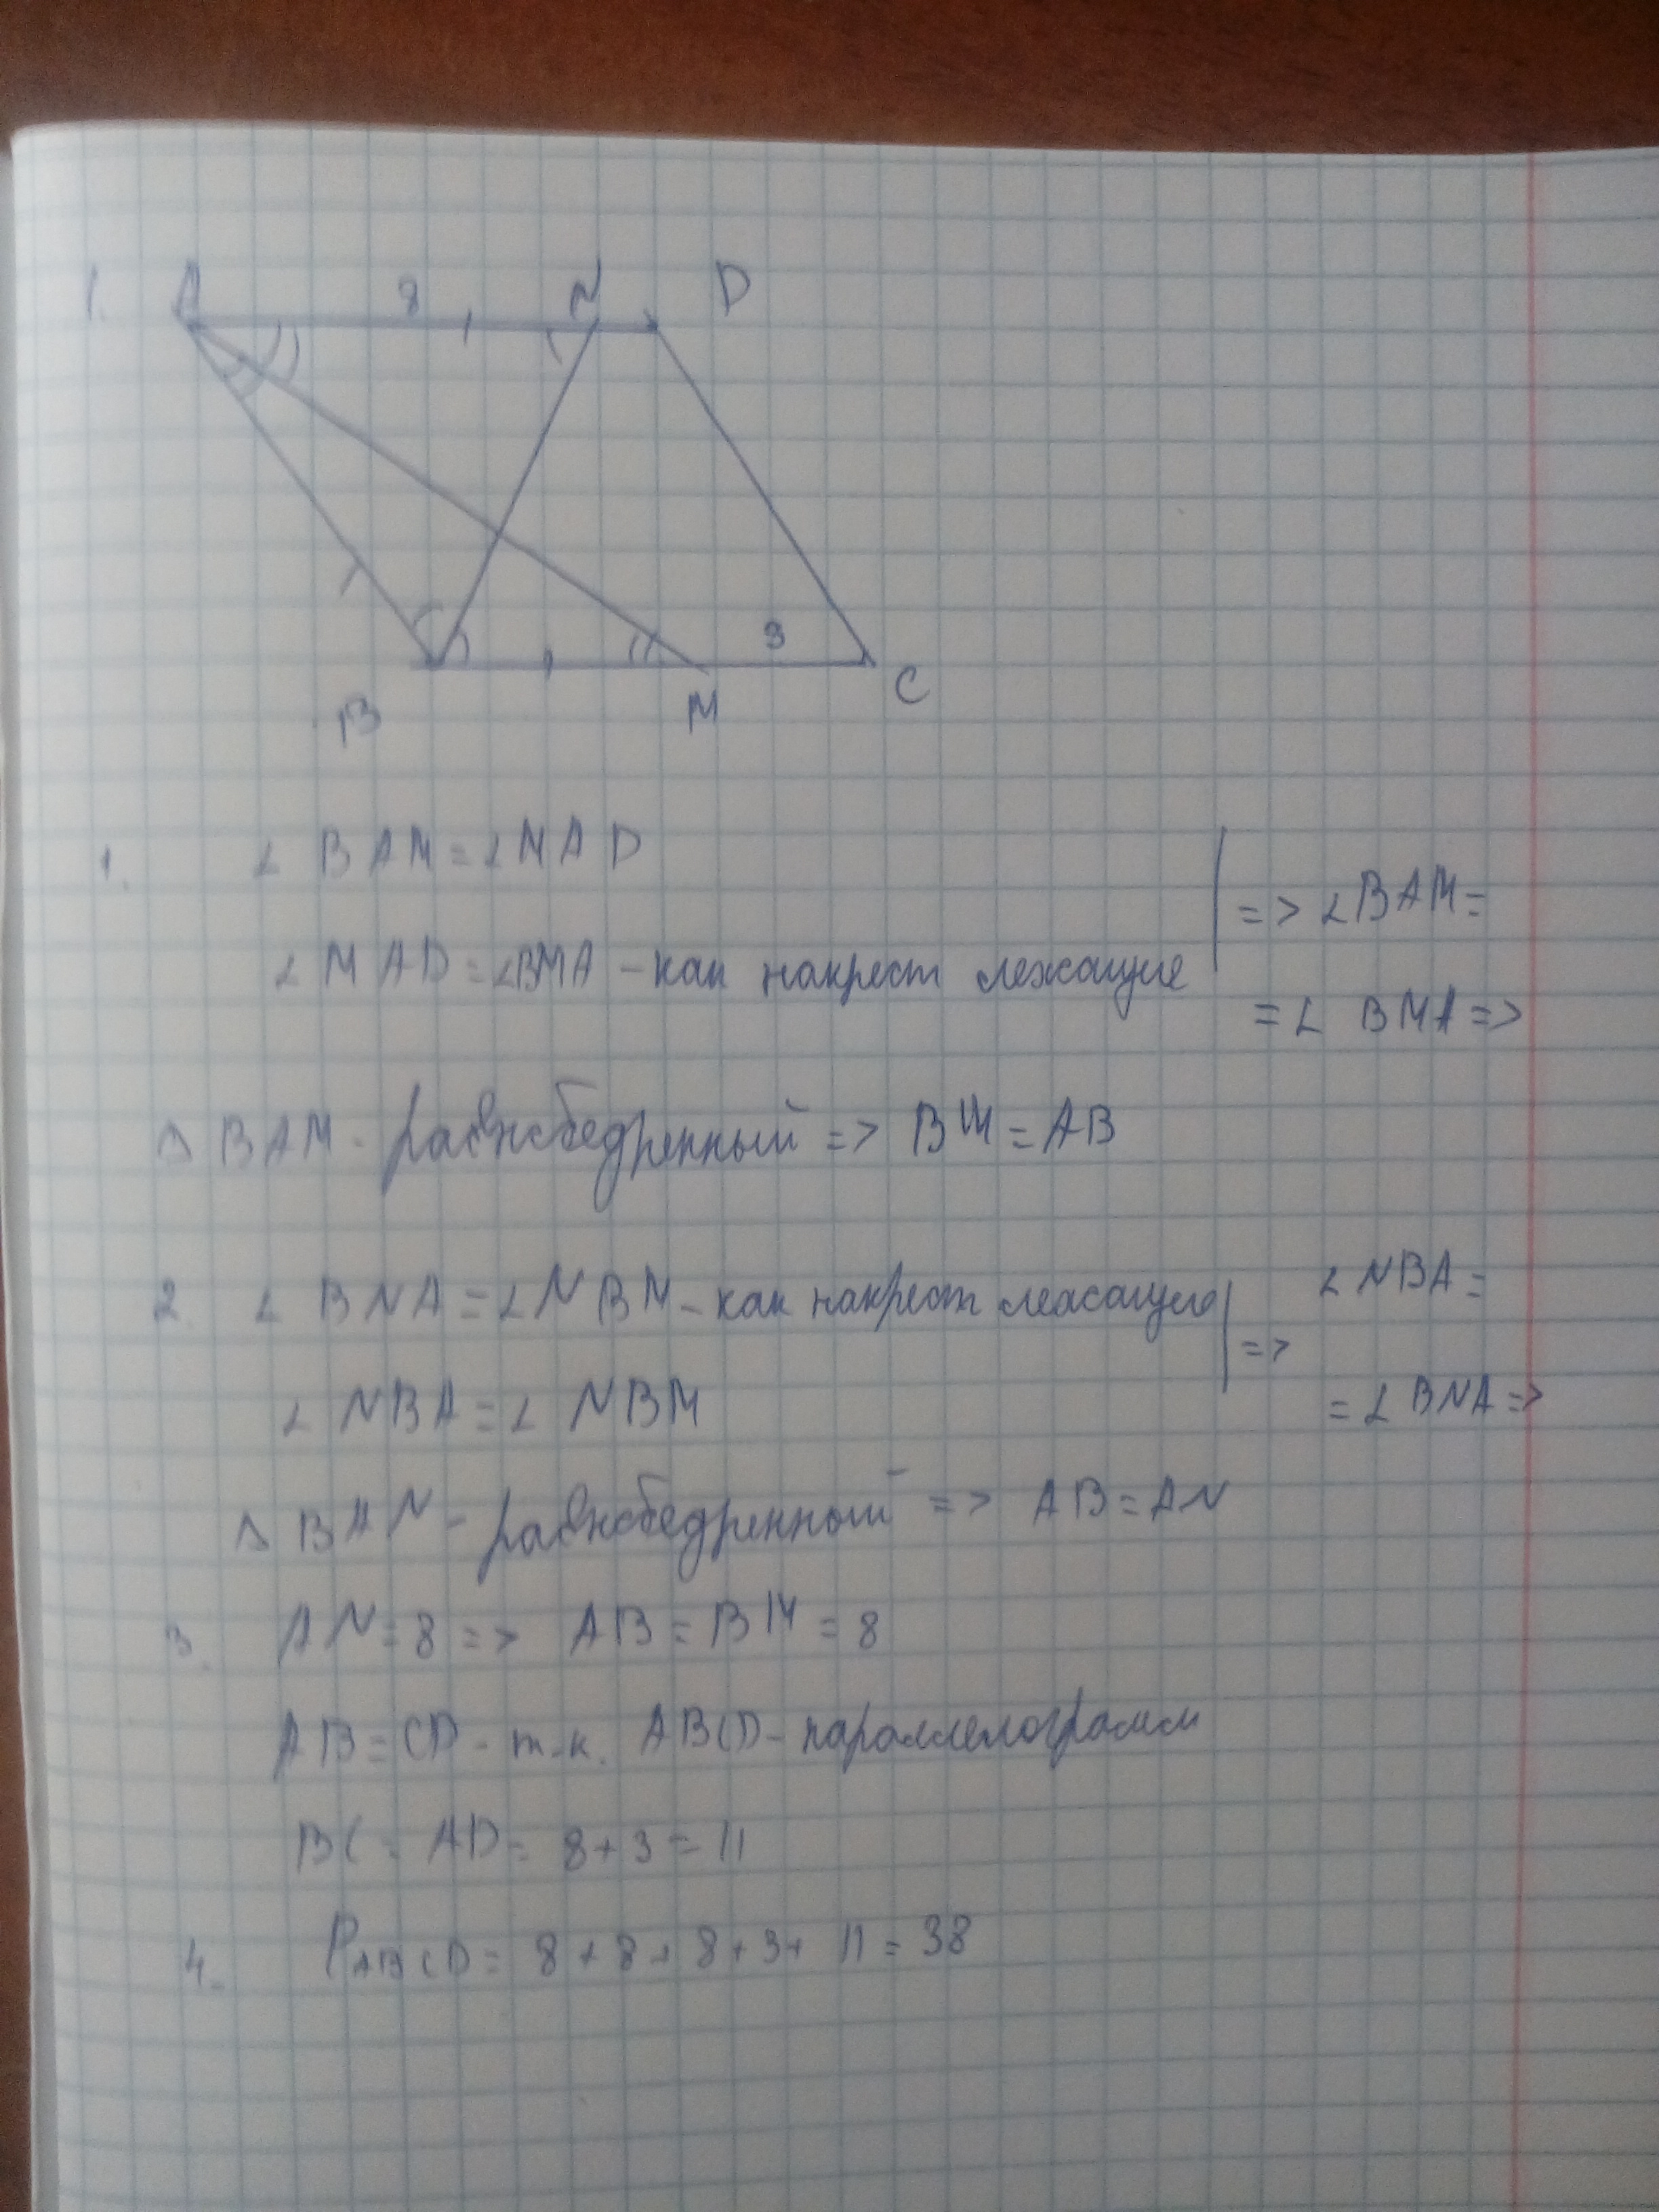 1. A 8 N D
3
B M C
1. ∠ BAM = ∠ MAD
=> ∠ BAM =
∠ MAD = ∠BMA – как накрест лежащие
= ∠ BMA =>
△ BAM - равнобедренный => BM = AB
2. ∠ BNA = ∠ NBM – как накрест лежащие
∠ NBA =
=>
∠ NBA = ∠ NBM
= ∠ BNA =>
△ BAN – равнобедренный => AB = AN
3. AN = 8 => AB = BM = 8
AB = CD - т.к. ABCD - параллелограмм
BC = AD = 8 + 3 = 11
4. PABCD = 8 + 8 + 8 + 3 + 11 = 38